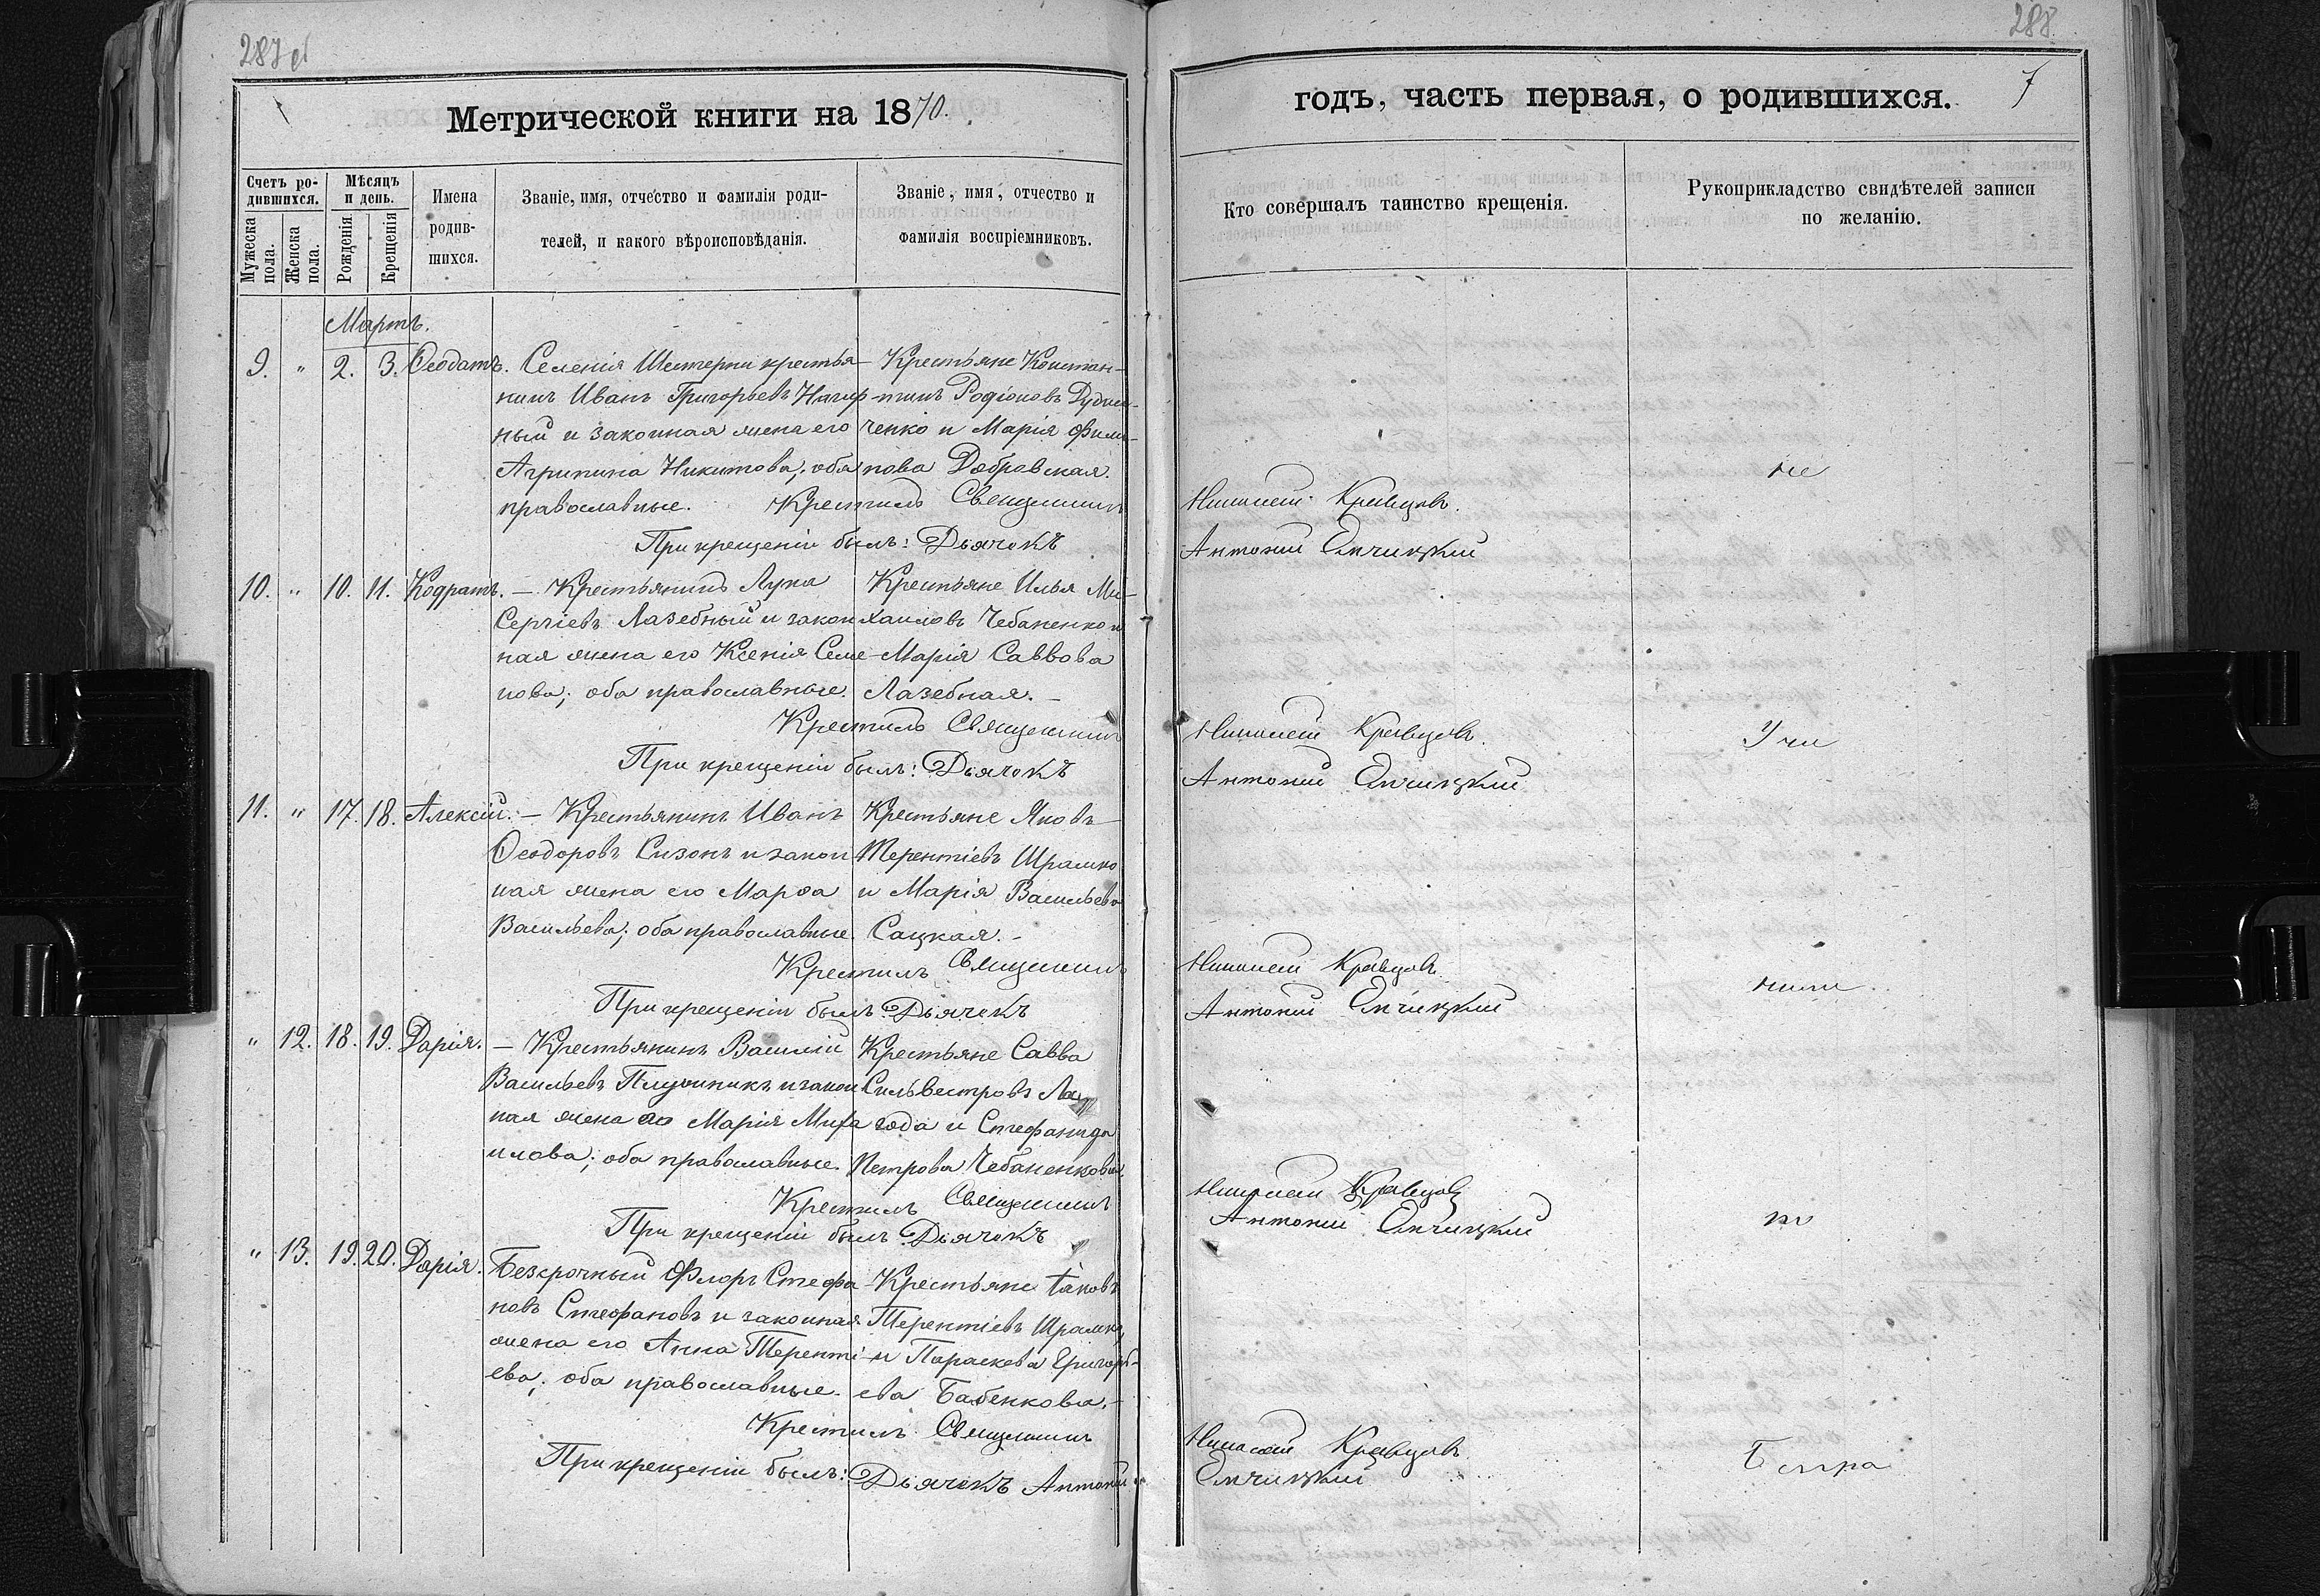 287об
288
7
Метрической книги на 1870.
годъ, часть первая, о родившихся.
Счетъ ро-
дившихся.
Мужеска пола.
Женска пола.
Мѣсяцъ
и день.
Рожденія
Крещенія
Имена
родив-
шихся.
Званіе, имя, отчество и фамилія роди-
телей, и какого вѣроисповѣданія.
Званіе, имя, отчество и
фамилія воспріемниковъ.
Кто совершалъ таинство крещенія.
Рукоприкладство свидѣтелей записи
по желанію.
Мартъ.
9. " 2. 3. Ѳеодатъ. Селенія Шестерни крестья- Крестьяне Констан-
нинъ Иванъ Григорьевъ тинъ Родіоновъ
ный и законная жена его ченко и Марія Фили-
Агрипина Никитова; оба пова Добровская.
православные. Крестилъ Священникъ Николай Кравцовъ.
При крещеніи былъ: Дьячокъ Антоній
не
10. " 10. 11. Кодратъ. — Крестьянинъ Лука Крестьяне Илья Ми-
Сергіевъ Лазебный и закон хаиловъ Чебаненко и
ная жена его Ксенія Семе- Марія Саввова
нова; оба православные. Лазебная. —
Крестилъ Священникъ Николай Кравцовъ.
При крещеніи былъ: Дьячокъ Антоній
Учи
11. " 17. 18. Алексій. — Крестьянинъ Иванъ Крестьяне Яковъ
Ѳеодоровъ Сизонъ и закон Терентіевъ Шрамко
ная жена его Марѳа и Марія Васильева
Васильева; оба православные. Сацкая. —
Крестилъ Священникъ Николай Кравцовъ.
При крещеніи былъ: Дьячекъ Антоній
" 12. 18. 19. Дарія. — Крестьянинъ Василій Крестьяне Савва
Васильевъ и закон Сильвестровъ
ная жена его Марія Миха года и Стефанида
илова; оба православные. Петрова Чебаненкова.
Крестилъ Священникъ Николай Кравцовъ
При крещеніи былъ Дьячокъ Антоній
" 13. 19. 20. Дарія. Безсрочный Флоръ Стефа- Крестьяне Іаковъ
новъ Стефановъ и законная Терентіевъ Шрамко
жена его Анна Теренті- и Параскева Григорь-
ева; оба православные. ева Бабенкова. —
Крестилъ Священникъ Николай Кравцовъ
При крещеніи былъ: Дьячекъ Антоній